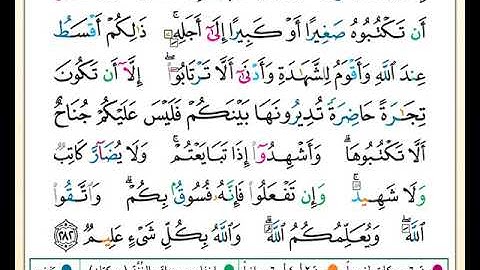 أَن تَكْتُبُوهُ صَغِيرًا أَوْ كَبِيرًا إِلَىٰٓ أَجَلِهِۦۚ ذَٰلِكُمْ أَقْسَطُ
عِندَ ٱللَّهِ وَأَقْوَمُ لِلشَّهَٰدَةِ وَأَدْنَىٰٓ أَلَّا تَرْتَابُوٓا۟ۖ إِلَّآ أَن تَكُونَ
تِجَٰرَةً حَاضِرَةً تُدِيرُونَهَا بَيْنَكُمْ فَلَيْسَ عَلَيْكُمْ جُنَاحٌ
أَلَّا تَكْتُبُوهَاۗ وَأَشْهِدُوٓا۟ إِذَا تَبَايَعْتُمْۚ وَلَا يُضَآرَّ كَاتِبٌ
وَلَا شَهِيدٌۚ وَإِن تَفْعَلُوا۟ فَإِنَّهُۥ فُسُوقٌۢ بِكُمْۗ وَٱتَّقُوا۟
ٱللَّهَۖ وَيُعَلِّمُكُمُ ٱللَّهُۗ وَٱللَّهُ بِكُلِّ شَىْءٍ عَلِيمٌ ٢٨٢